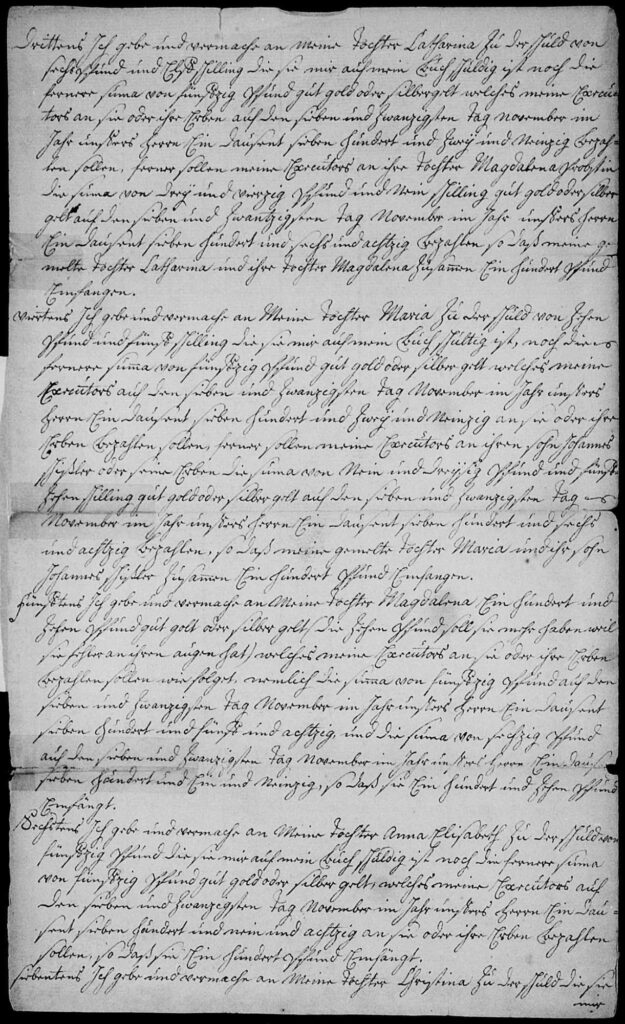 Drittens Ich gebe und vermache an Meine Tochter Catharina Zu der schuld von
sechs Pfund und Elf schilling die sie mir auf mein Buch schuldig ist noch die
fernere suma von fünfzig Pfund gut gold oder silber gelt welches meine Execu-
tors an sie oder ihre Erben auf den sieben und Zwanzigsten Tag November im
Jahr unsers Herrn Ein Dausent sieben hundert und Zwey und Neinzig bezah-
len sollen, ferner sollen meine Executors an ihre Tochter Magdalena
die suma von Drey und vierzig Pfund und Nein schilling gut gold oder silber
gelt auf den sieben und Zwantzigsten Tag November im Jahr unsers Herrn
Ein Dausent sieben hundert und sechs und achtzig bezahlen so daß meine ge-
melte Tochter Catharina und ihre Tochter Magdalena Zusammen Ein hundert Pfund
Empfangen.
Viertens Ich gebe und vermache an Meine Tochter Maria Zu der schuld von Zehen
Pfund und fünf schilling die sie mir auf mein Buch schultig ist, noch die
fernere summa von fünfzig Pfund gut gold oder silber gelt welches meine
Executors auf den sieben und Zwanzigsten Tag November im Jahr unsers
Herrn Ein Dausent sieben hundert und Zwey und Neinzig an sie oder ihre
Erben bezahlen sollen, ferner sollen meine Executors an ihren sohn Johannes
oder seine Erben die suma von Nein und Dreyßig Pfund und fünf-
zehen schilling gut gold oder silber gelt auf den sieben und Zwanzigsten Tag
November im Jahr unsers Herrn Ein Dausent sieben hundert und sechs
und achtzig bezahlen, so daß meine gemelte Tochter Maria und ihr sohn
Johannes Zusammen Ein hundert Pfund Empfangen.
Fünftens Ich gebe und vermache an Meine Tochter Magdalena Ein hundert und
Zehen Pfund gut golt oder silber gelt (die Zehen Pfund soll sie mehr haben weil
sie fehler an ihren augen hat) welches meine Executors an sie oder ihre Erben
bezahlen sollen wie folget, nemlich die summa von fünfzig Pfund auf den
sieben und Zwanzigsten Tag November im Jahr unsers Herrn Ein Dausent
sieben hundert und fünf und achtzig, und die suma von sechzig Pfund
auf den sieben und Zwanzigsten Tag November im Jahr unsers Herrn Ein Dausent
sieben hundert und Ein und Neinzig, so daß sie Ein hundert und Zehen Pfund
Empfängt.
Sechstens Ich gebe und vermache an Meine Tochter Anna Elisabeth Zu der schuld von
fünfzig Pfund die sie mir auf mein Buch schuldig ist noch die fernere suma
von fünfzig Pfund gut gold oder silber gelt, welches meine Executors auf
den sieben und Zwanzigsten Tag November im Jahr unsers Herrn Ein Dau-
sent sieben hundert und nein und achtzig an sie oder ihre Erben bezahlen
sollen, so daß sie Ein hundert Pfund Empfängt.
siebentens Ich gebe und vermache an Meine Tochter Christina Zu der schuld die sie
mir